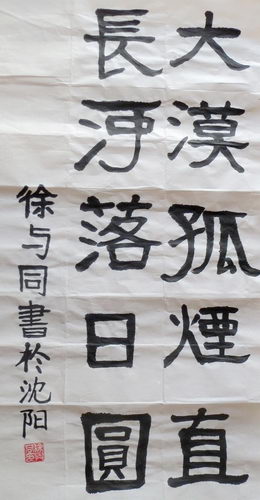 大漠孤煙直
長河落日圓
徐与同書於沈阳